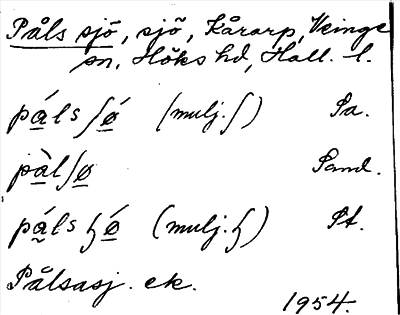 Påls sjö, sjö, Kårarp, Veinge
sn, Höks hd, Hall. l.
pá̱lsʃǿ̱ (mulj. ʃ) Pa.
pà̱lʃø̱ Sand.
pá̱lsɧǿ̱ (mulj. ɧ) St.
Pålsasj. ek.
1954.